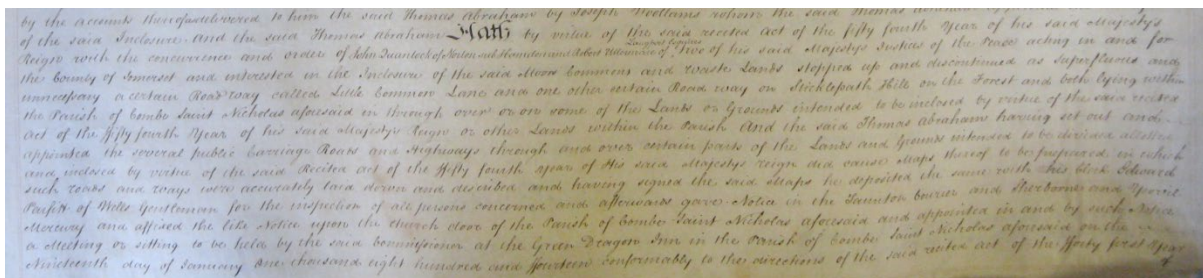 by the accounts thereof delivered to him the said Thomas Abraham by Joseph Woollams whom the said Thomas
of the said Inclosure And the said Thomas Abraham Hath by virtue of the said recited Act of the fifty fourth Year of his said Majesty's
Reign with the concurrence and order of John Quantock of Norton and Robert Esquires Two of his said Majestys Justices of the Peace acting in and for
the County of Somerset and interested in the Inclosure of the said Moors Commons and Waste Lands stopped up and discontinued as Superfluous and
unnecessary a certain Road way called Little Common Lane and one other certain Road way on Stichlepath Hill on the Forest and both lying within
the Parish of Combe Saint Nicholas aforesaid in through over or on some of the Lands or Grounds intended to be inclosed by virtue of the said recited
Act of the fifty fourth Year of his said Majestys Reign or other Lands within the Parish And the said Thomas Abraham having set out and
appointed the several public Carriage Roads and Highways through and over certain parts of the Lands and Grounds intended to be divided allotted
and inclosed by virtue of the said Recited Act of the fifty fourth Year of His said Majestys reign did cause Maps thereof to be prepared in which
such roads and ways were accurately laid down and described and having signed the said Maps he deposited the same with his Clerk Edward
Parfitt of Wells Gentleman for the inspection of all persons concerned and afterwards gave Notice in the Taunton Courier and Sherborne and Yeovil
Mercury and affixed the like Notice upon the Church door of the Parish of Combe Saint Nicholas aforesaid and appointed in and by such Notice
a Meeting or sitting to be held by the said Commissioner at the Green Dragon Inn in the Parish of Combe Saint Nicholas aforesaid on the
Nineteenth day of January One thousand eight hundred and fourteen Conformably to the directions of the said recited act of the forty first Year